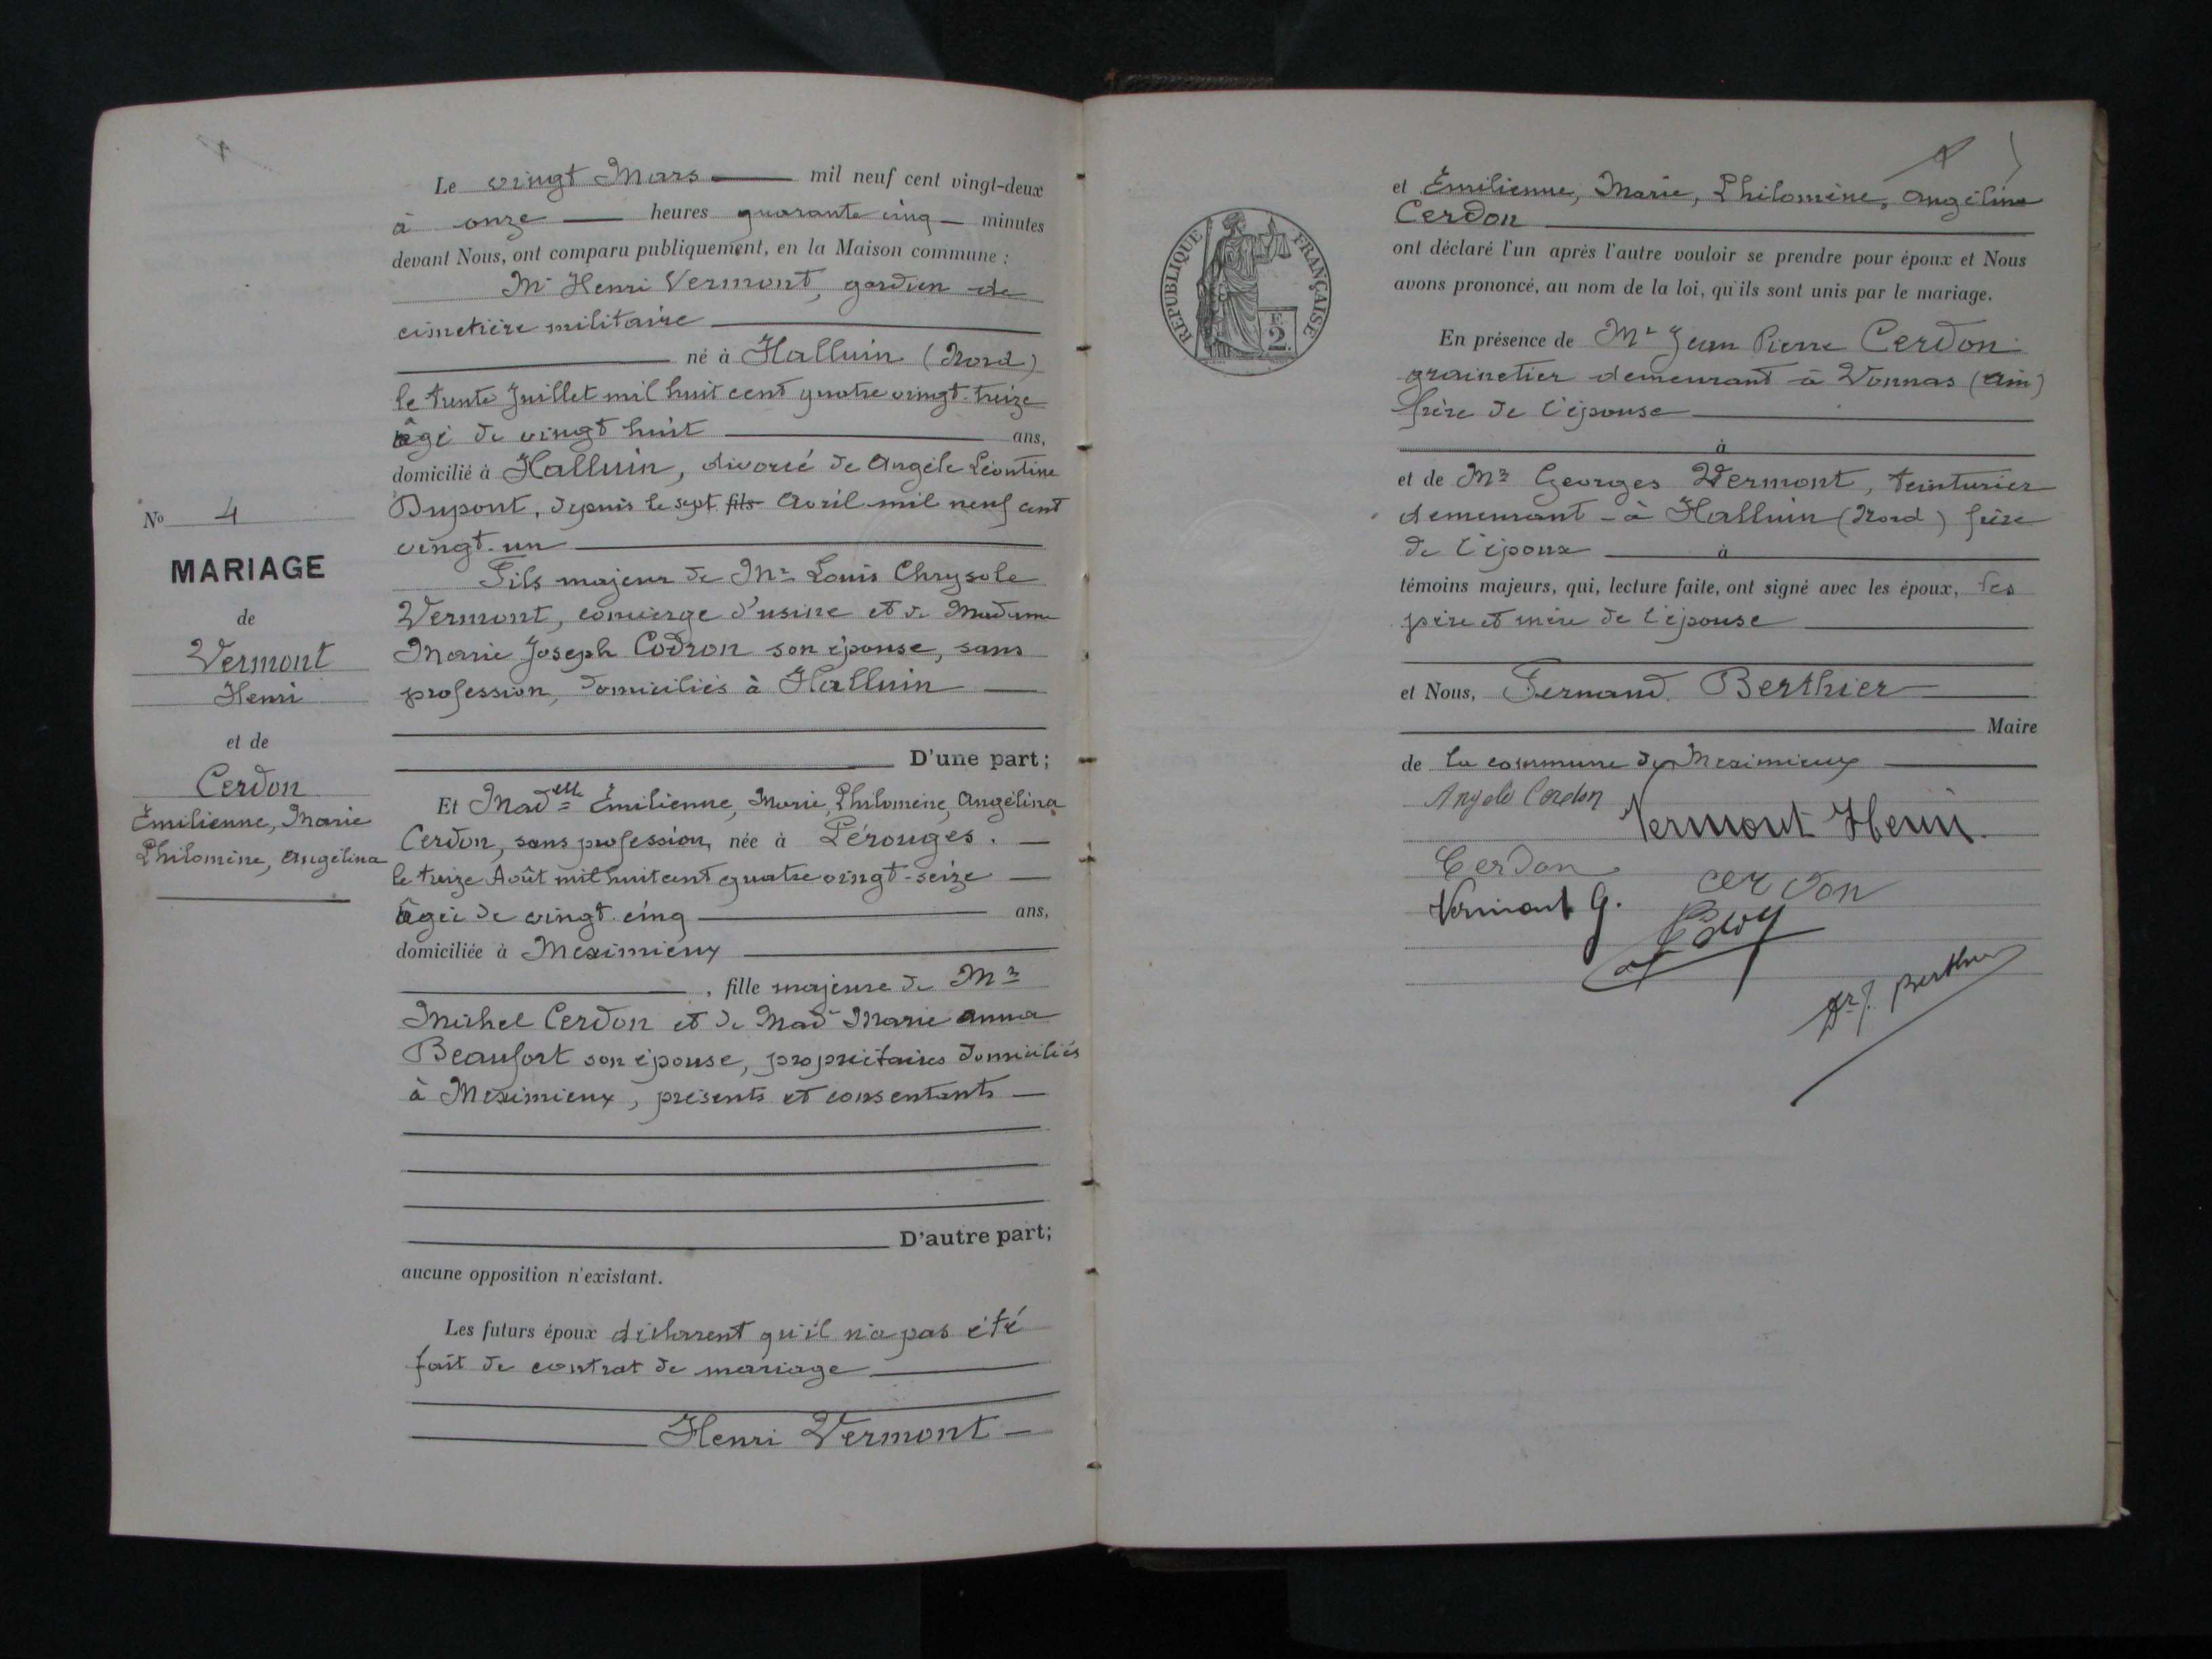 Le vingt Mars mil neuf cent vingt-deux
à onze heures quarante cinq minutes
devant Nous, ont comparu publiquement, en la Maison commune :
Mr Henri Vermont, gardien de
cimetière militaire
né à Halluin (Nord)
le trente Juillet mil huit cent quatre vingt-treize
âgé de vingt huit ans,
domicilié à Halluin, divorcé de Angèle Léontine
Dupont, depuis le sept fils Avril mil neuf cent
vingt-un
Fils majeur de Mr Louis Chrysole
Vermont, concierge d'usine et de Madame
Marie Joseph Codron son épouse, sans
profession, domiciliés à Halluin
D'une part;
No 4
MARIAGE
de
Vermont
Henri
et de
Cerdon
Émilienne, Marie
Philomène, Angélina
Et Madelle Émilienne, Marie, Philomène, Angélina
Cerdon, sans profession, née à Pérouges.
le treize Août mil huit cent quatre vingt-seize
âgée de vingt cinq ans,
domiciliée à Meximieux
, fille majeure de Mr
Michel Cerdon et de Made Marie Anna
Beaufort son épouse, propriétaires domiciliés
à Meximieux, présents et consentants
D'autre part;
aucune opposition n'existant.
Les futurs époux déclarent qu'il n'a pas été
fait de contrat de mariage
Henri Vermont
RÉPUBLIQUE FRANÇAISE
F.
2.
et Émilienne, Marie, Philomène, Angélina
Cerdon
ont déclaré l'un après l'autre vouloir se prendre pour époux et Nous
avons prononcé, au nom de la loi, qu'ils sont unis par le mariage.
En présence de Mr Jean Pierre Cerdon
grainetier demeurant à Vonnas (Ain)
frère de l'épouse
à
et de Mr Georges Vermont, teinturier
demeurant à Halluin (Nord) frère
de l'époux à
témoins majeurs, qui, lecture faite, ont signé avec les époux, les
père et mère de l'épouse
et Nous, Fernand Berthier
Maire
de la commune de Meximieux
Angele Cerdon
Vermont Henri
Cerdon
cerdon
Vermont G.
Dr F. Berthier